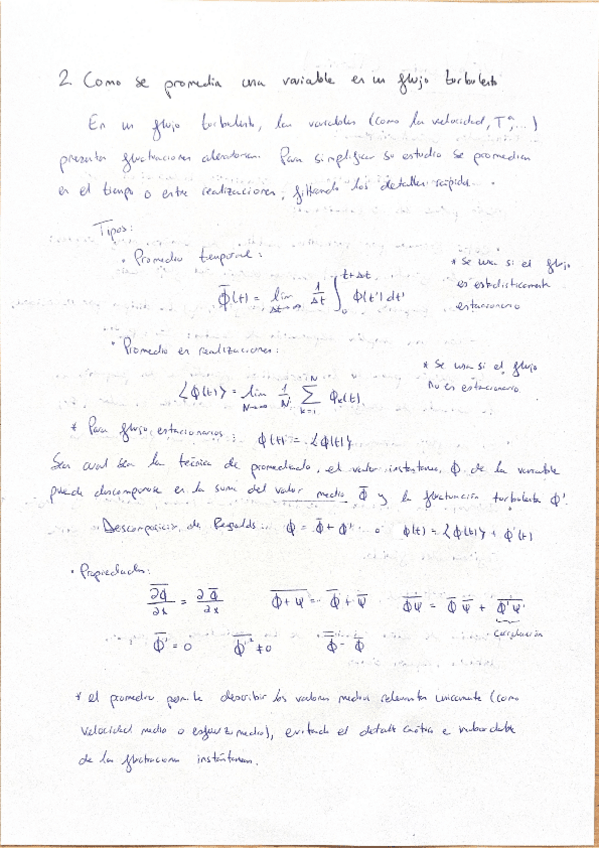 2. Como se promedia una variable en un flujo turbulento
En un flujo turbulento, las variables (como la velocidad, Tª, ...)
presentan fluctuaciones aleatorias. Para simplificar su estudio se promedian
en el tiempo o entre realizaciones, filtrando los detalles rápidos.
Tipos:
• Promedio temporal:
* Se usa si el flujo
es estadísticamente
estacionario
ϕ̅(t) = lim_{Δt→∞} 1/Δt ∫_0^{t+Δt} ϕ(t') dt'
• Promedio en realizaciones:
* Se usa si el flujo
no es estacionario
⟨ϕ(t)⟩ = lim_{N→∞} 1/N Σ_{k=1}^{N} ϕ_k(t).
* Para flujos estacionarios: ϕ(t) = ⟨ϕ(t)⟩
Sea cual sea la técnica de promediado, el valor instantáneo, ϕ de la variable
puede descomponerse en la suma del valor medio ϕ̅ y la fluctuación turbulenta ϕ'.
Descomposición de Reynolds: ϕ = ϕ̅ + ϕ' o ϕ(t) = ⟨ϕ(t)⟩ + ϕ'(t)
• Propiedades:
\overline{∂ϕ/∂x} = ∂ϕ̅/∂x \overline{ϕ+ψ} = ϕ̅ + ψ̅ \overline{ϕψ} = ϕ̅ ψ̅ + \overline{ϕ'ψ'}
correlación
\overline{ϕ'} = 0 \overline{ϕ'²} ≠ 0 \overline{ϕ̅} = ϕ̅
* el promedio permite describir los valores medios relevantes unicamente (como
velocidad media o esfuerzo medio), evitando el detalle caótico e inabordable
de las fluctuaciones instantáneas.